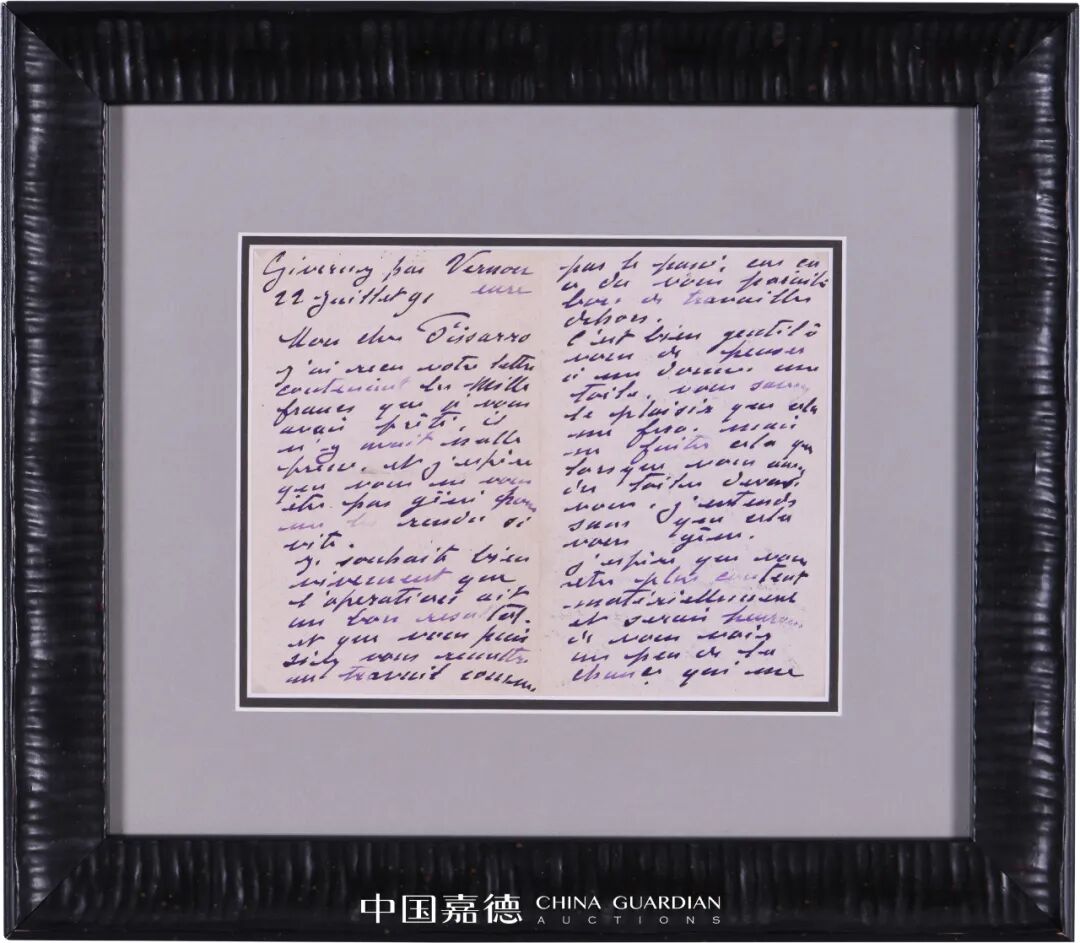 Giverny par Vernon
22 Juillet 91 eure
Mon cher Pissarro
J'ai reçu votre lettre
contenant les Mille
francs que je vous
avais prêté, il
n'y avait nulle
presse. et j'espère
que vous ne vous
êtes pas gêné pour
me les rendre si
vite.
Je souhaite bien
vivement que
l'operation ait
un bon resultat.
et que vous puis
siez vous remettre
au travail comme
par le passé, car
a du vous paraître
de travailler
dehors.
C'est bien gentil à
vous de penser
à me donner une
toile, vous savez
le plaisir que cela
me fera. mais
ne faites cela que
lorsque vous aurez
des toiles devant
vous, j'entends
sans que cela
vous gêne.
J'espère que vous
êtes plus content
matériellement
et serais heureux
de vous voir
un peu de la
chance qui me
中国嘉德 CHINA GUARDIAN
AUCTIONS